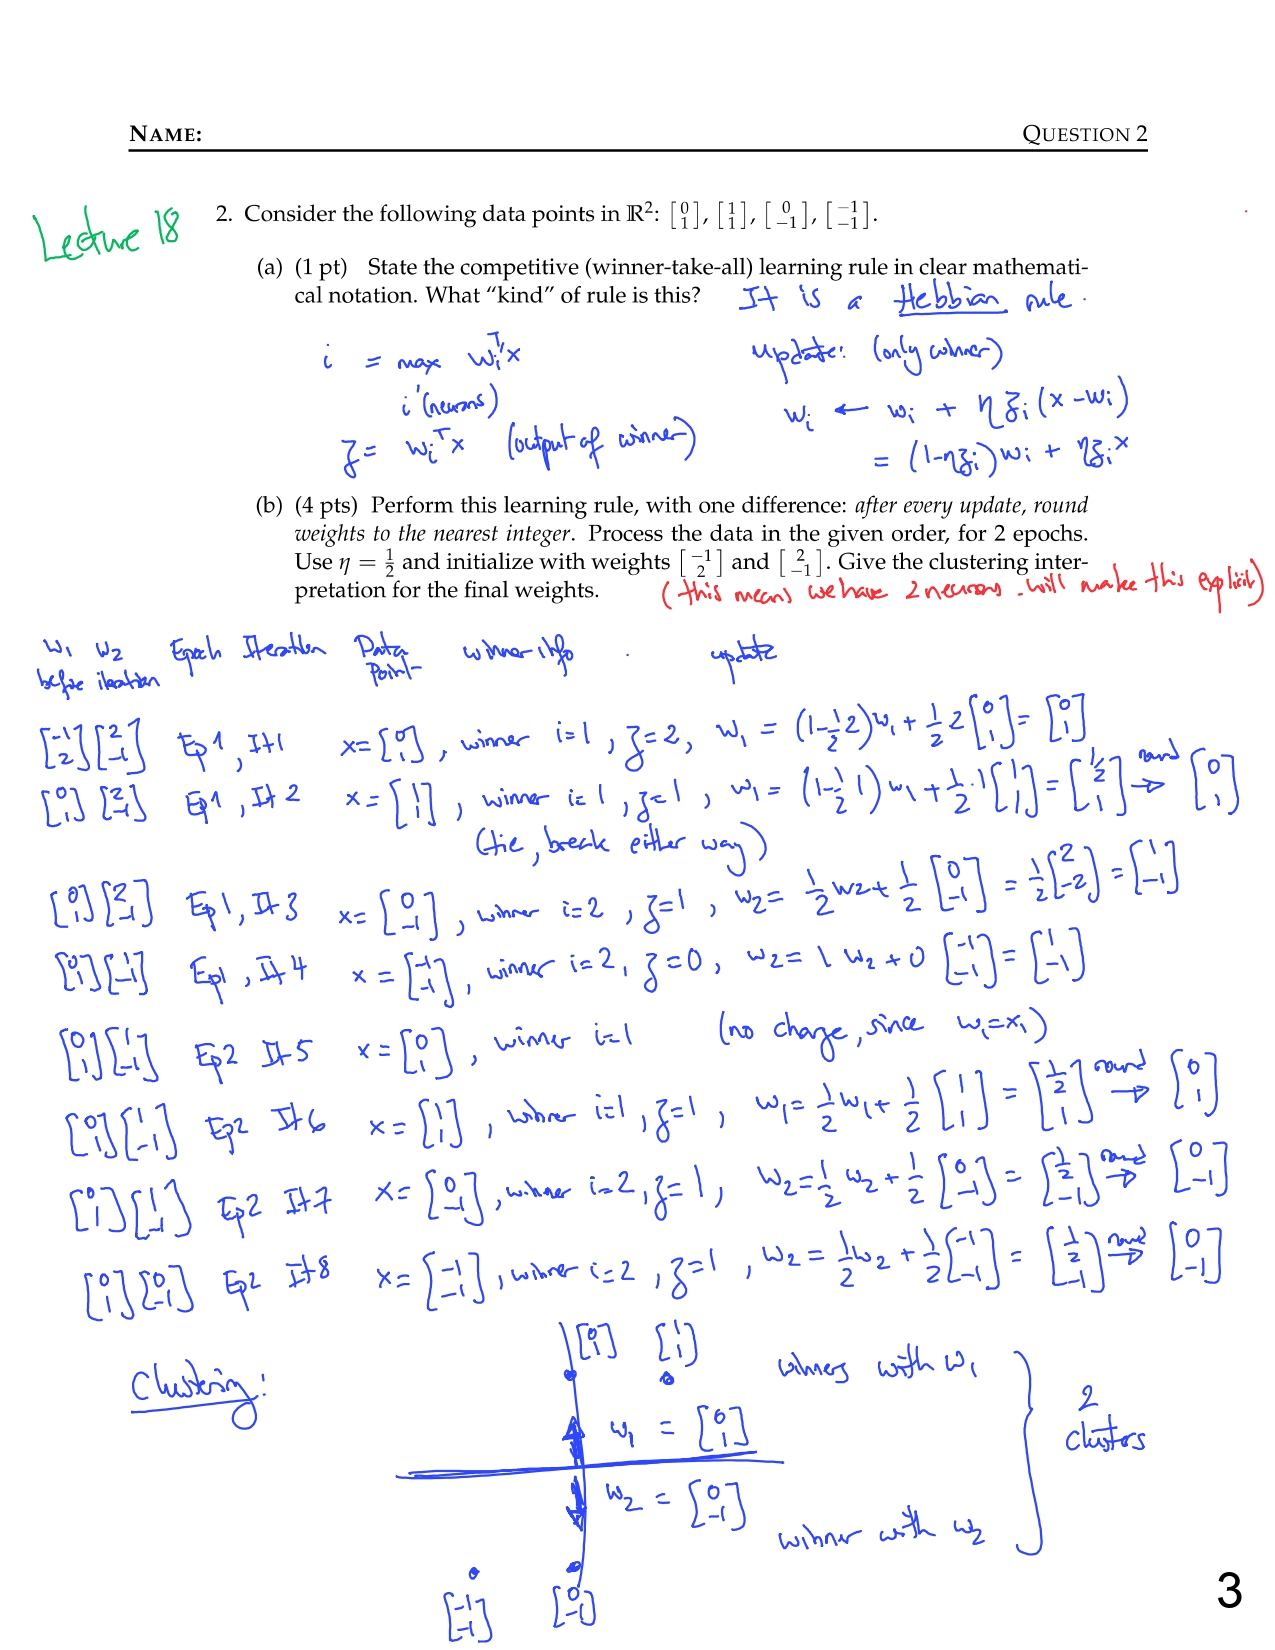 NAME: QUESTION 2
Lecture 18
2. Consider the following data points in ℝ²: [0 1], [1 1], [0 -1], [-1 -1].
(a) (1 pt) State the competitive (winner-take-all) learning rule in clear mathemati-
cal notation. What “kind” of rule is this? It is a Hebbian rule.
i = max wᵢ'ᵀx update: (only winner)
i' (neurons) wᵢ ← wᵢ + ηzᵢ(x - wᵢ)
z = wᵢᵀx (output of winner) = (1-ηzᵢ)wᵢ + ηzᵢx
(b) (4 pts) Perform this learning rule, with one difference: after every update, round
weights to the nearest integer. Process the data in the given order, for 2 epochs.
Use η = 1/2 and initialize with weights [-1 2] and [2 -1]. Give the clustering inter-
pretation for the final weights. (this means we have 2 neurons - will make this explicit)
w₁ w₂ Epoch Iteration Data winner info . update
before iteration Point
[-1 2] [2 -1] Ep1, It1 x = [0 1], winner i=1, z=2, w₁ = (1-1/2 2)w₁ + 1/2 2[0 1] = [0 1]
[0 1] [2 -1] Ep1, It2 x = [1 1], winner i=1, z=1, w₁ = (1-1/2 1)w₁ + 1/2·1[1 1] = [1/2 1] round → [0 1]
(tie, break either way)
[0 1] [2 -1] Ep1, It3 x = [0 -1], winner i=2, z=1, w₂ = 1/2 w₂ + 1/2 [0 -1] = 1/2 [2 -2] = [1 -1]
[0 1] [1 -1] Ep1, It4 x = [-1 -1], winner i=2, z=0, w₂ = 1 w₂ + 0 [-1 -1] = [1 -1]
[0 1] [1 -1] Ep2 It5 x = [0 1], winner i=1 (no change, since w₁=x₁)
[0 1] [1 -1] Ep2 It6 x = [1 1], winner i=1, z=1, w₁ = 1/2 w₁ + 1/2 [1 1] = [1/2 1] round → [0 1]
[0 1] [1 -1] Ep2 It7 x = [0 -1], winner i=2, z=1, w₂ = 1/2 w₂ + 1/2 [0 -1] = [1/2 -1] round → [0 -1]
[0 1] [0 -1] Ep2 It8 x = [-1 -1], winner i=2, z=1, w₂ = 1/2 w₂ + 1/2 [-1 -1] = [1/2 -1] round → [0 -1]
[0 1] [1 1]
Clustering: winners with w₁
w₁ = [0 1] 2
clusters
w₂ = [0 -1]
winner with w₂
[-1 -1] [0 -1]
3